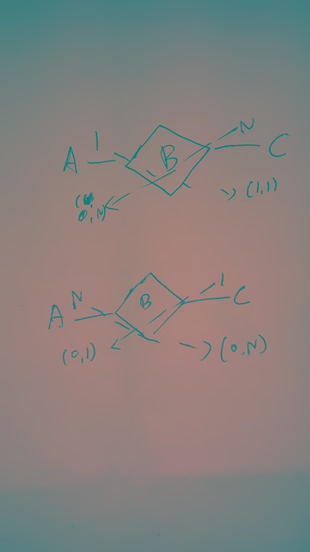 A 1 B N C
(0,N) (1,1)
A N B 1 C
(0,1) (0,N)